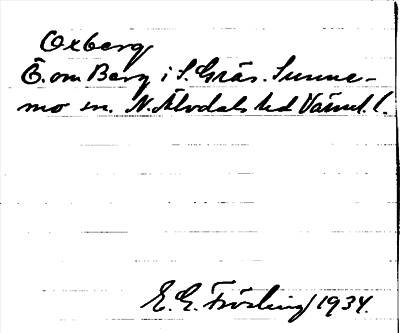 Oxberg
Ö. om Berg i S. Gräs. Sunne-
mo sn. N. Älvdals hd Värml. l.
E. G. Fröding 1934.